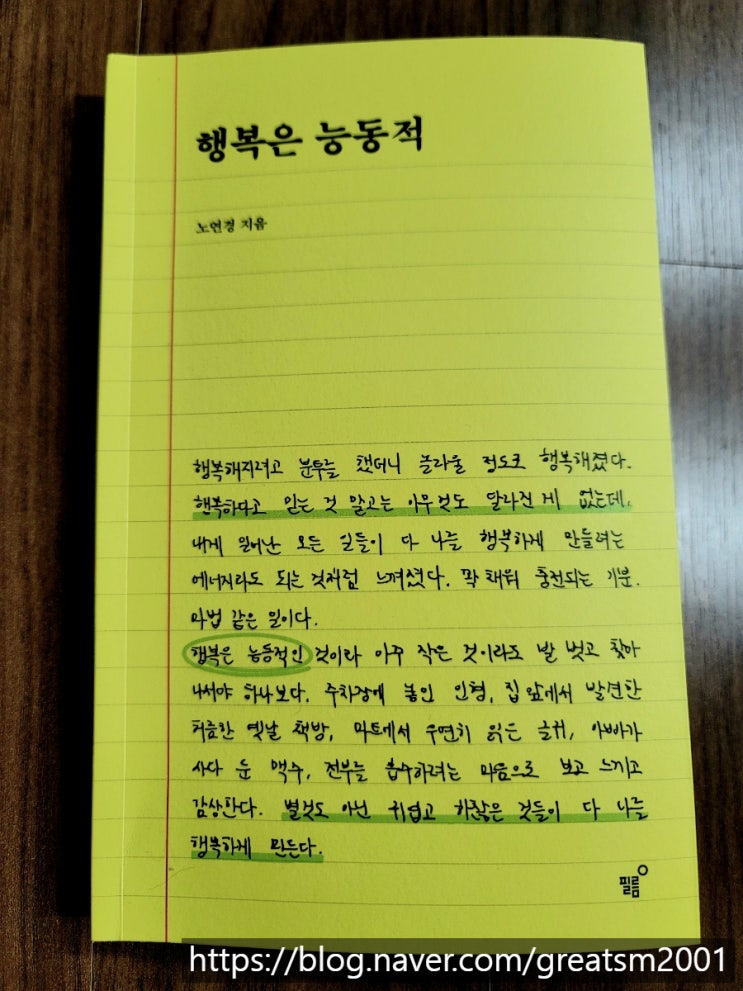 행복은 능동적
노연경 지음
행복해지려고 분투를 했더니 놀라울 정도로 행복해졌다.
행복하다고 믿는 것 말고는 아무것도 달라진 게 없는데,
내게 일어난 모든 일들이 다 나를 행복하게 만들려는
에너지라도 되는 것처럼 느껴졌다. 꽉 채워 충전되는 기분.
마법 같은 일이다.
행복은 능동적인 것이라 아주 작은 것이라도 발 벗고 찾아
나서야 하나보다. 주차장에 놓인 인형, 집 앞에서 발견한
허름한 옛날 책방, 마트에서 우연히 읽은 글귀, 아빠가
사다 둔 맥주, 전부를 흡수하려는 마음으로 보고 느끼고
감상한다. 별것도 아닌 귀엽고 하찮은 것들이 다 나를
행복하게 만든다.
필름
https://blog.naver.com/greatsm2001